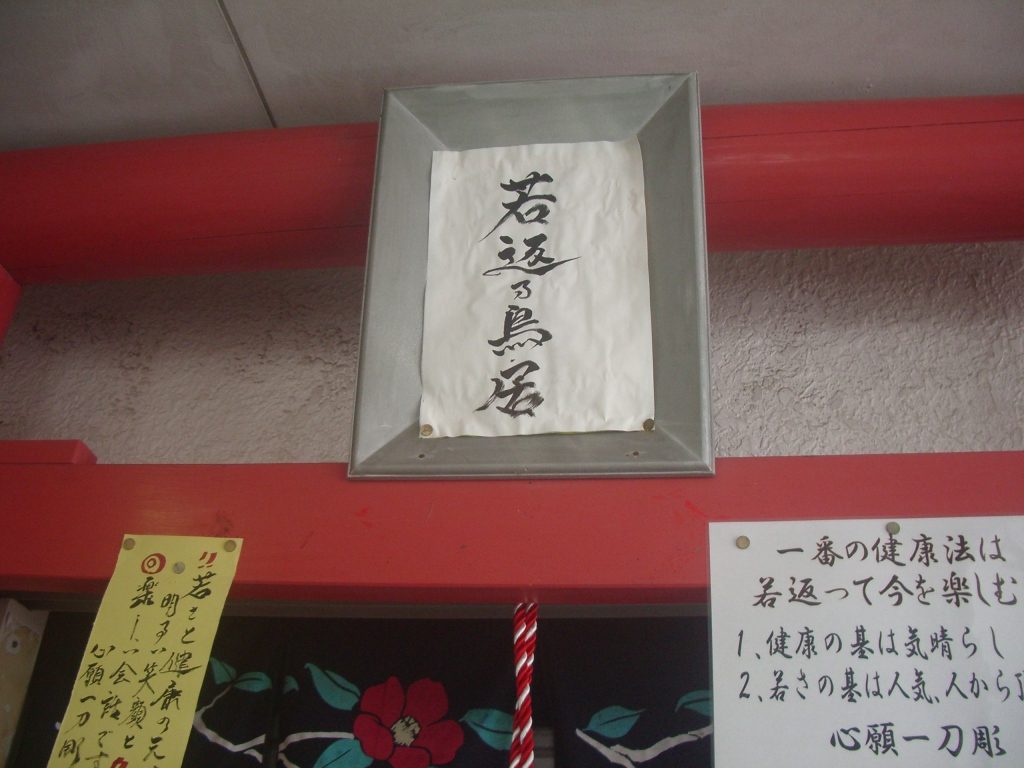 若返る鳥居
若さと健康の元
明るい笑顔と
楽しい会話です
心願一刀彫
一番の健康法は
若返って今を楽しむ
1、健康の基は気晴らし
2、若さの基は人気、人から
心願一刀彫